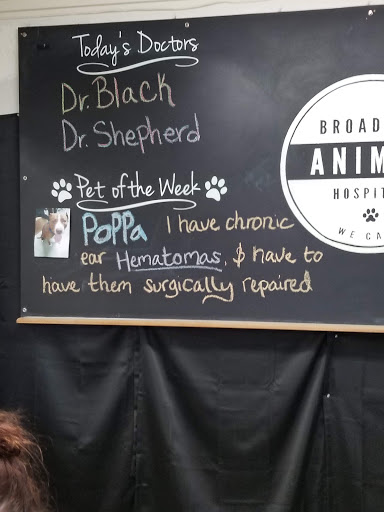 Today's Doctors
Dr. Black
Dr. Shepherd
Pet of the Week
PoPPa I have chronic
ear Hematomas, & have to
have them surgically repaired
BROAD
ANIM
HOSPIT
WE CA